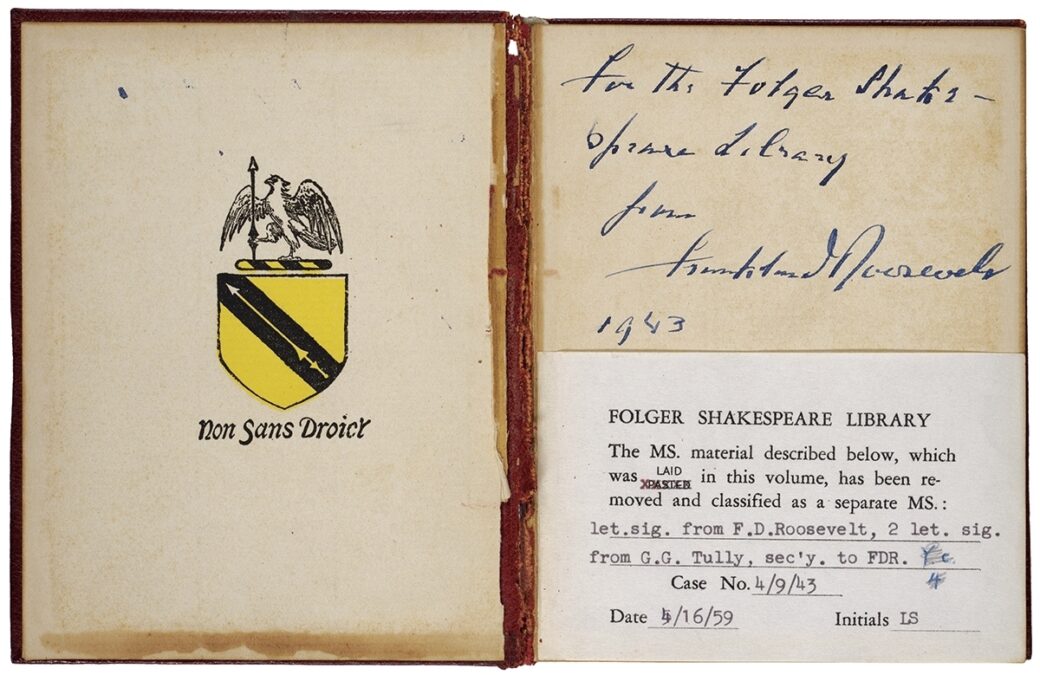 Non Sans Droict
For the Folger Shake-
speare Library
from
Franklin D Roosevelt
1943
FOLGER SHAKESPEARE LIBRARY
The MS. material described below, which
LAID
was PASTED in this volume, has been re-
moved and classified as a separate MS.:
let.sig. from F.D.Roosevelt, 2 let. sig.
from G.G. Tully, sec'y. to FDR.
Case No. 4/9/43
Date 5/16/59 Initials LS